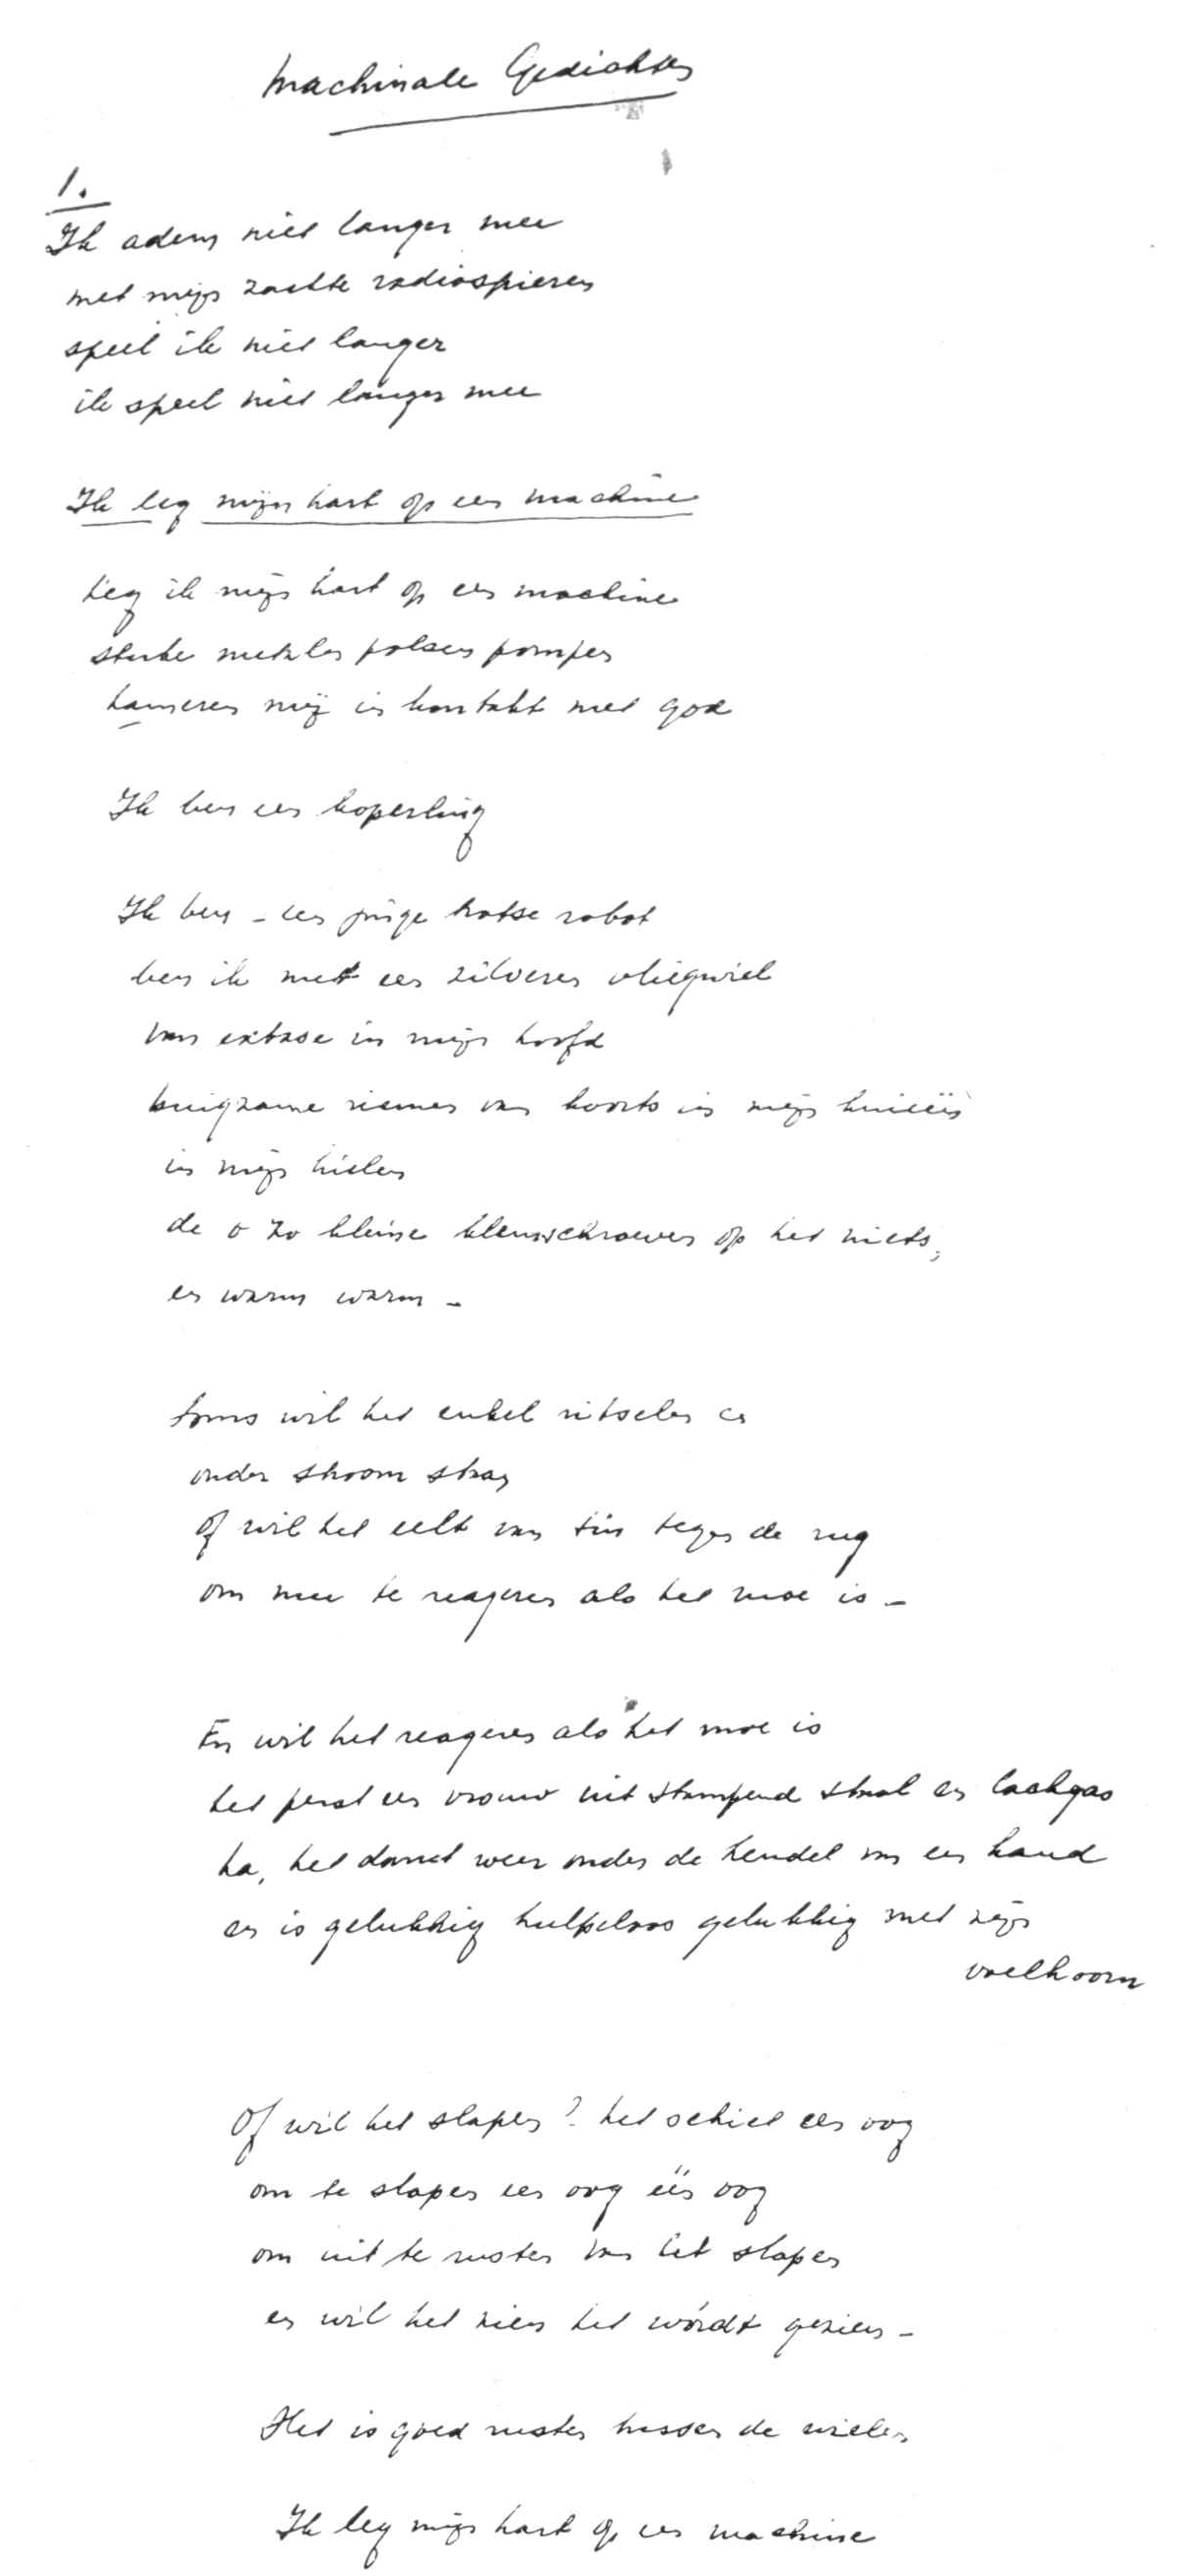 Machinale Gedichten
1.
Ik adem niet langer mee
met mijn zachte radiospieren
speel ik niet langer
ik speel niet langer mee
Ik leg mijn hart op een machine
Leg ik mijn hart op een machine
sterke metalen polsen pompen
lanceren mij in kontakt met god
Ik ben een koperling
Ik ben - een jonge trotse robot
ben ik met een zilveren vliegwiel
van extase in mijn hoofd
buigzame riemen van koorts in mijn knieën
in mijn hielen
de o zo kleine klemschroeven op het niets,
en warm warm -
Soms wil het enkel ritselen en
onder stroom staan
Of wil het eelt van tin tegen de rug
om mee te reageren als het moe is -
En wil het reageren als het moe is
het perst een vrouw uit stampend staal en lachgas
ha, het danst weer onder de hendel van een hand
en is gelukkig hulpeloos gelukkig met zijn
voelhoorn
Of wil het slapen? het schiet een oog
om te slapen een oog één oog
om uit te rusten van het slapen
en wil het zien het wórdt gezien -
Het is goed rusten tussen de wielen
Ik leg mijn hart op een machine